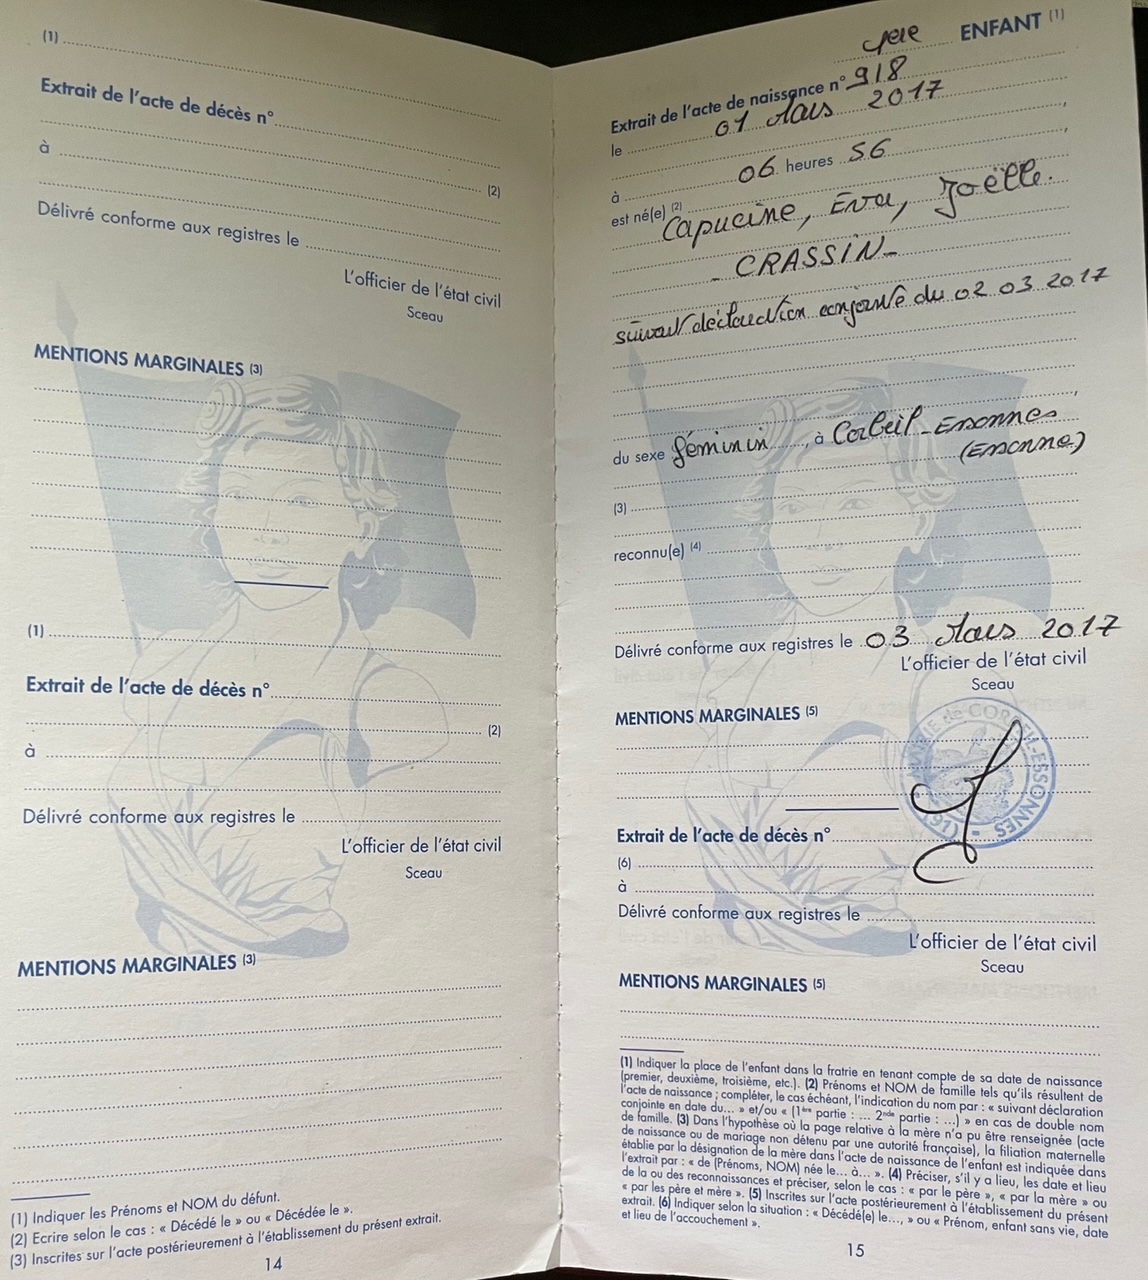 (1)
Extrait de l'acte de décès n°
(2)
à
Délivré conforme aux registres le
L'officier de l'état civil
Sceau
MENTIONS MARGINALES (3)
(1)
Extrait de l'acte de décès n°
(2)
à
Délivré conforme aux registres le
L'officier de l'état civil
Sceau
MENTIONS MARGINALES (3)
(1) Indiquer les Prénoms et NOM du défunt.
(2) Ecrire selon le cas : « Décédé le » ou « Décédée le ».
(3) Inscrites sur l'acte postérieurement à l'établissement du présent extrait.
14
ENFANT (1)
Extrait de l'acte de naissance n° 918
le 01 Mars 2017,
à 06 heures 56,
est né(e) (2)
Capucine, Eva, Joëlle.
- CRASSIN -
suivant déclaration conjointe du 02 03 2017
du sexe féminin, à Corbeil-Essonnes
(Essonne)
(3)
reconnu(e) (4)
Délivré conforme aux registres le 03 Mars 2017
L'officier de l'état civil
Sceau
MAIRIE de CORBEIL-ESSONNES
MENTIONS MARGINALES (5)
Extrait de l'acte de décès n°
(6)
à
Délivré conforme aux registres le
L'officier de l'état civil
Sceau
MENTIONS MARGINALES (5)
(1) Indiquer la place de l'enfant dans la fratrie en tenant compte de sa date de naissance
(premier, deuxième, troisième, etc.). (2) Prénoms et NOM de famille tels qu'ils résultent de
l'acte de naissance ; compléter, le cas échéant, l'indication du nom par : « suivant déclaration
conjointe en date du... » et/ou « (1ère partie : ... 2nde partie : ...) » en cas de double nom
de famille. (3) Dans l'hypothèse où la page relative à la mère n'a pu être renseignée (acte
de naissance ou de mariage non détenu par une autorité française), la filiation maternelle
établie par la désignation de la mère dans l'acte de naissance de l'enfant est indiquée dans
l'extrait par : « de (Prénoms, NOM) née le... à... ». (4) Préciser, s'il y a lieu, les date et lieu
de la ou des reconnaissances et préciser, selon le cas : « par le père », « par la mère » ou
« par les père et mère ». (5) Inscrites sur l'acte postérieurement à l'établissement du présent
extrait. (6) Indiquer selon la situation : « Décédé(e) le..., » ou « Prénom, enfant sans vie, date
et lieu de l'accouchement ».
15